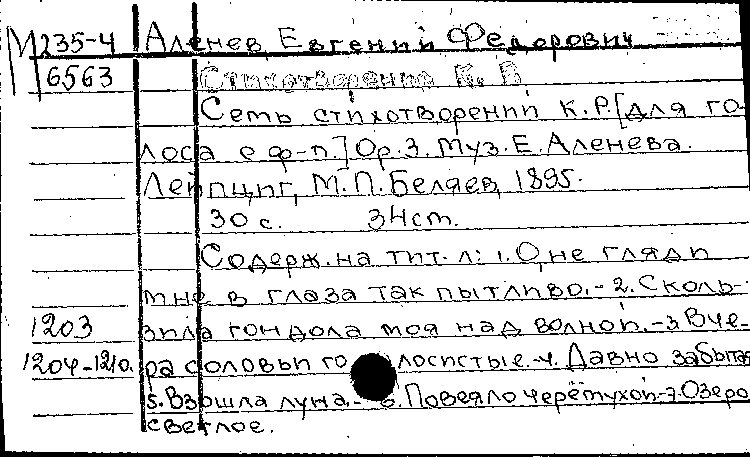 М235-4 Аленев, Евгений Федорович
16563 Стихотворения К. Р
Семь стихотворений К.Р. [для го-
лоса с ф-п.] Ор.3. Муз. Е. Аленева.
Лейпциг, М.П. Беляев, 1895.
30 с. 34 ст.
Содерж. на тит. л: 1. О, не гляди
мне в глаза так пытливо. - 2. Сколь-
1203 зила гондола моя над волной. - 3. Вче-
1204-1210. ра соловьи го лосистые. - 4. Давно забытая
5. Взошла луна. - 6. Повеяло черёмухой - 7. Озеро
светлое.